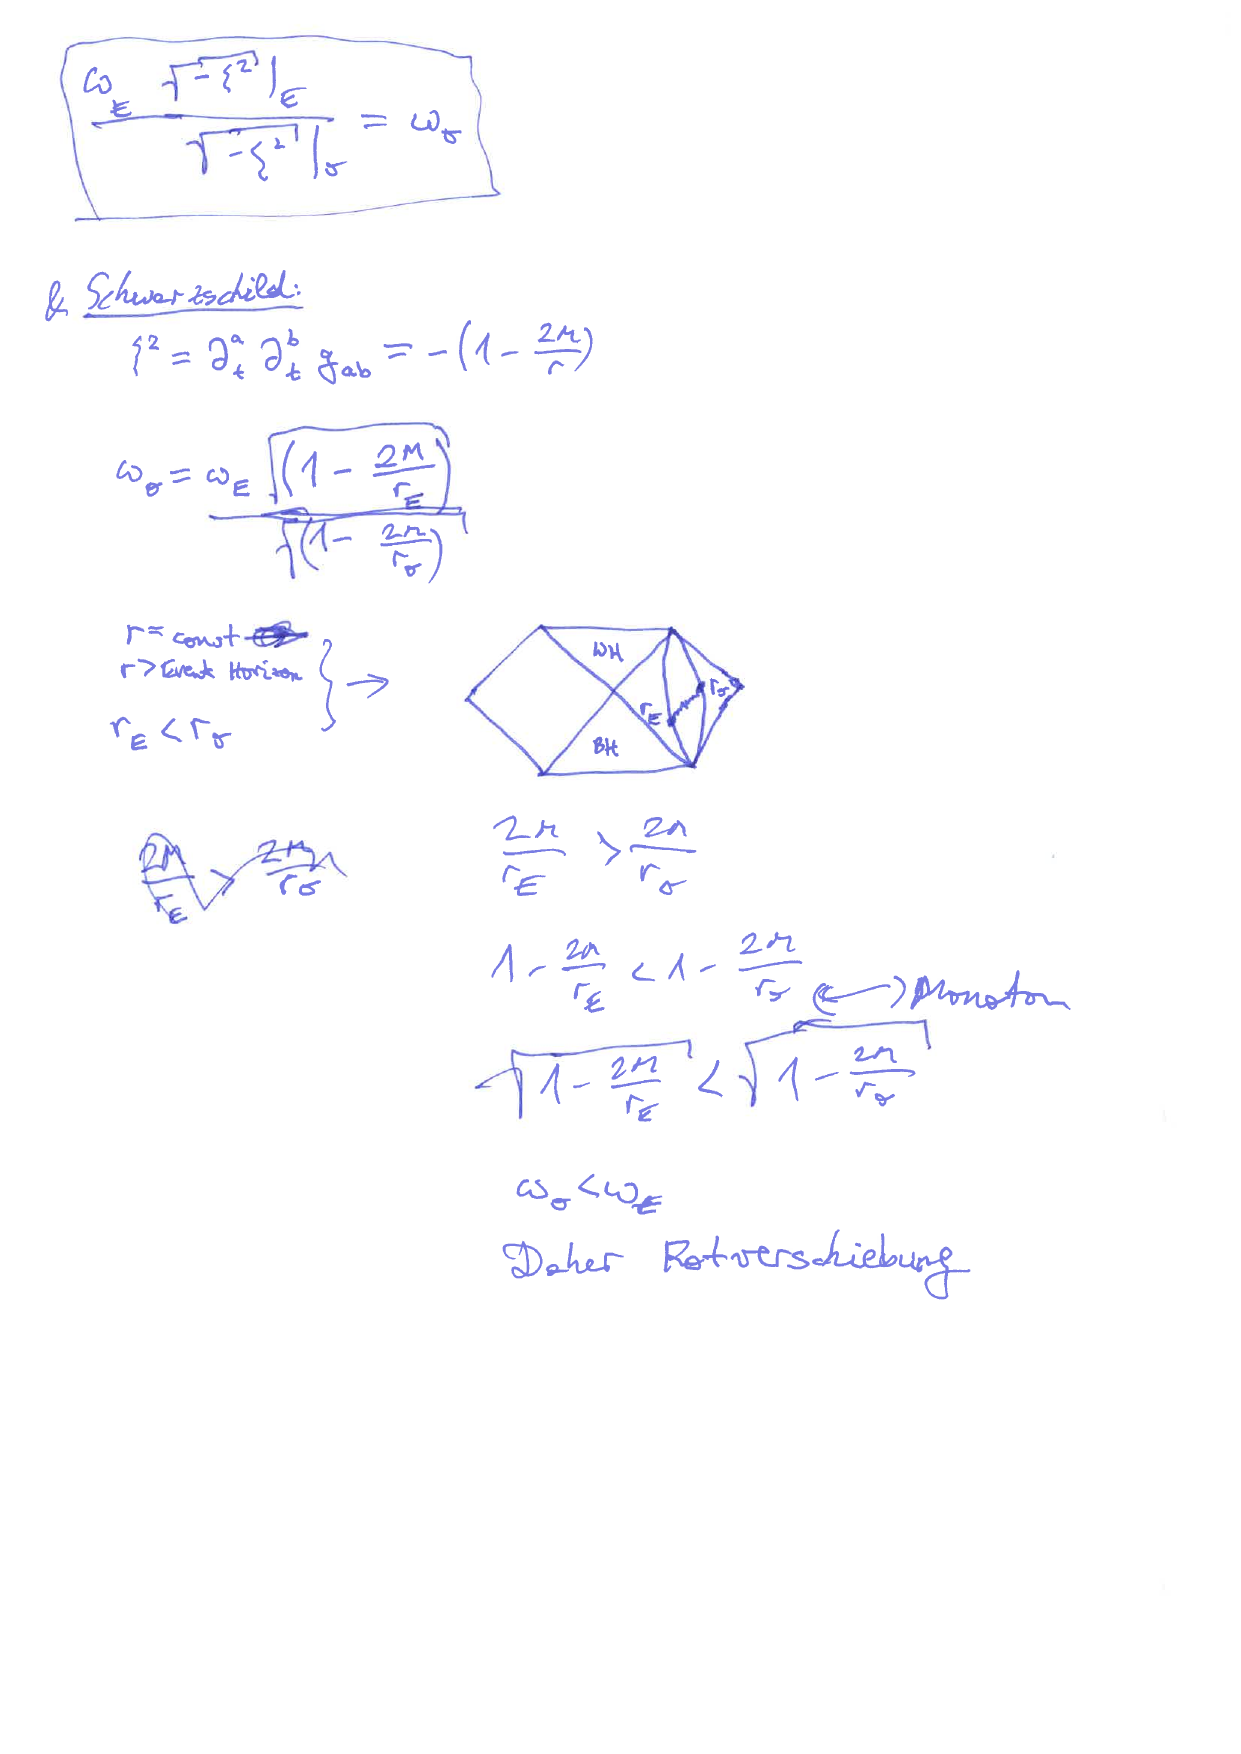 ω_E √(-ξ²)|_E / √(-ξ²)|_σ = ω_σ
& Schwarzschild:
ξ² = ∂_t^a ∂_t^b g_ab = -(1 - 2M/r)
ω_σ = ω_E √(1 - 2M/r_E) / √(1 - 2M/r_σ)
r = const
r > Event Horizon
r_E < r_σ
} →
WH
r_E
r_σ
BH
2M/r_E > 2M/r_σ
2M/r_E > 2M/r_σ
1 - 2M/r_E < 1 - 2M/r_σ
↔ Monoton
√(1 - 2M/r_E) < √(1 - 2M/r_σ)
ω_σ < ω_E
Daher Rotverschiebung